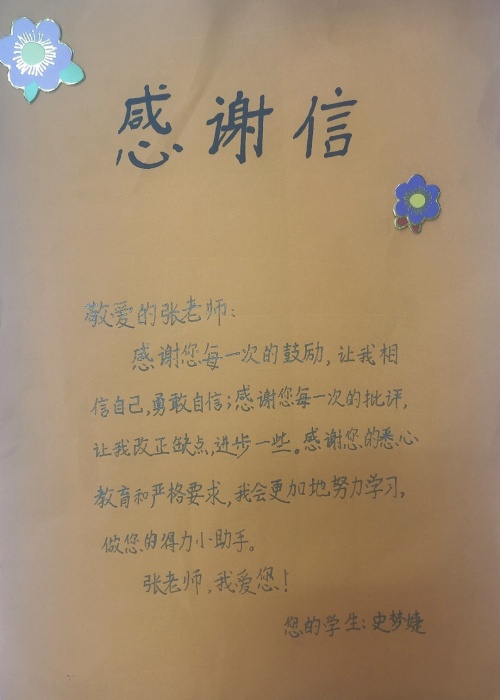 感谢信
敬爱的张老师:
感谢您每一次的鼓励,让我相
信自己,勇敢自信;感谢您每一次的批评,
让我改正缺点,进步一些。感谢您的悉心
教育和严格要求,我会更加地努力学习,
做您的得力小助手。
张老师,我爱您!
您的学生:史梦婕